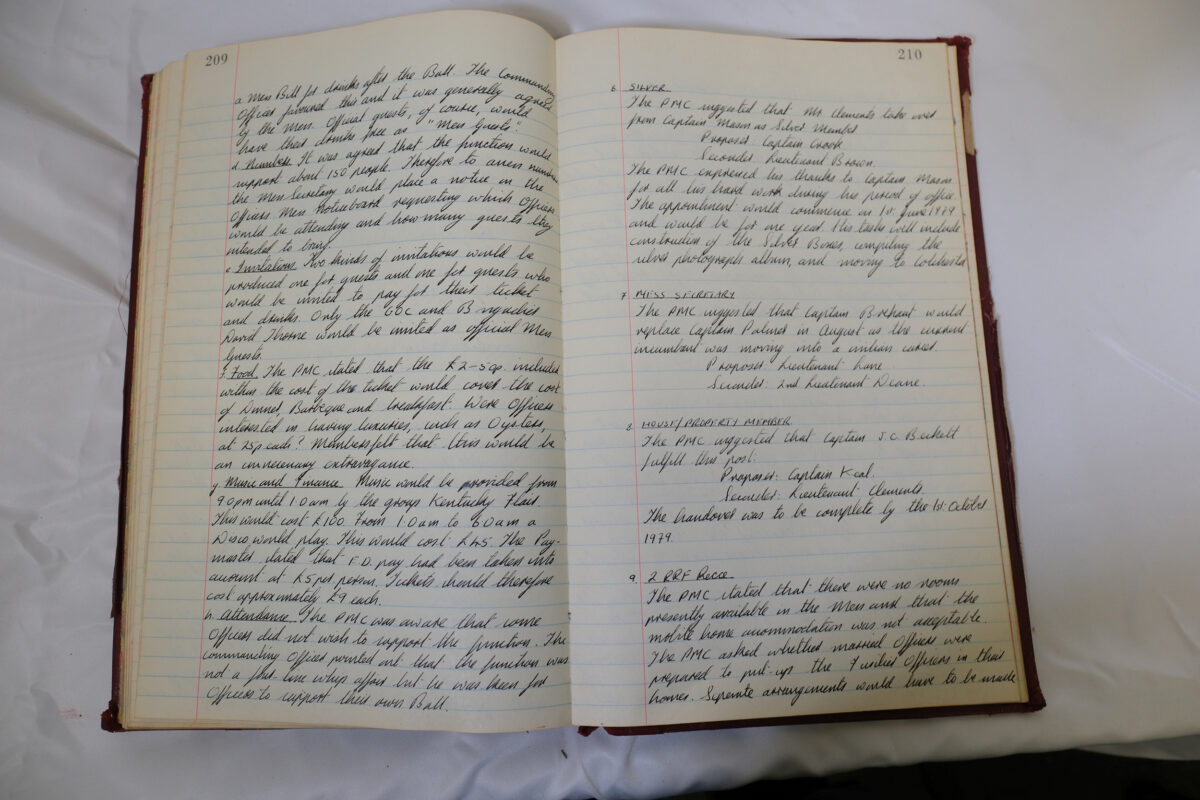 209
a Mess Bill for drinks after the Ball. The Commanding
Officer favoured this and it was generally agreed
by the Mess. Official guests, of course, would
have their drinks free as "Mess Guests"
d. Numbers. It was agreed that the function would
support about 150 people. Therefore to assess numbers
the Mess Secretary would place a notice on the
Officers Mess Noticeboard requesting which Officers
would be attending and how many guests they
intended to bring.
e. Invitations. Two kinds of invitations would be
produced one for guests and one for guests who
would be invited to pay for their ticket
and drinks. Only the GOC and Brigadier
David Thorne would be invited as official Mess
Guests.
f. Food. The PMC stated that the £2-50p included
within the cost of the ticket would cover the cost
of Dinner, Barbeque and breakfast. Were Officers
interested in having luxuries, such as Oysters,
at 25p each? Members felt that this would be
an unnecessary extravagance.
g. Music and Finance. Music would be provided from
9.0pm until 1.0am by the group Kentucky Flair.
This would cost £100. From 1.0am to 6.0am a
Disco would play. This would cost £45. The Pay-
master stated that F.D. pay had been taken into
account at £5 per person. Tickets should therefore
cost approximately £9 each.
h. Attendance. The PMC was aware that some
Officers did not wish to support the function. The
Commanding Officer pointed out that the function was
not a first line whip affair but he was keen for
Officers to support their own Ball.
210
6. SILVER.
The PMC suggested that Mr Clements take over
from Captain Mason as Silver Member
Proposer Captain Crook
Seconder Lieutenant Brown.
The PMC expressed his thanks to Captain Mason
for all his hard work during his period of office.
The appointment would commence on 1st June 1979
and would be for one year. His tasks will include
construction of the Silver Boxes, compiling the
silver photographs album, and moving to Colchester
7. MESS SECRETARY
The PMC suggested that Captain would
replace Captain Palmer in August as the current
incumbant was moving into a civilian career.
Proposer: Lieutenant Lane
Seconder: 2nd Lieutenant Deane.
8. HOUSE/PROPERTY MEMBER
The PMC suggested that Captain J.C. Beckett
fulfill this post.
Proposer: Captain Keal.
Seconder: Lieutenant Clements.
The handover was to be complete by the 1st October
1979.
9. 2 RRF Recce.
The PMC stated that there were no rooms
presently available in the Mess and that the
mobile home accommodation was not acceptable.
The PMC asked whether married Officers were
prepared to put-up the 7 Officers in their
homes. Seperate arrangements would have to be made